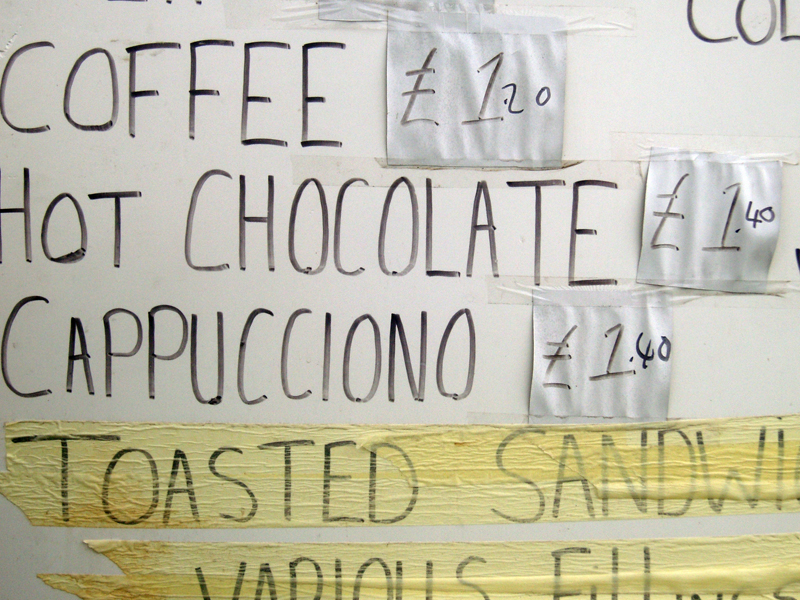 COFFEE £1.20
HOT CHOCOLATE £1.40
CAPPUCCIONO £1.40
TOASTED
VARIOUS FillingS